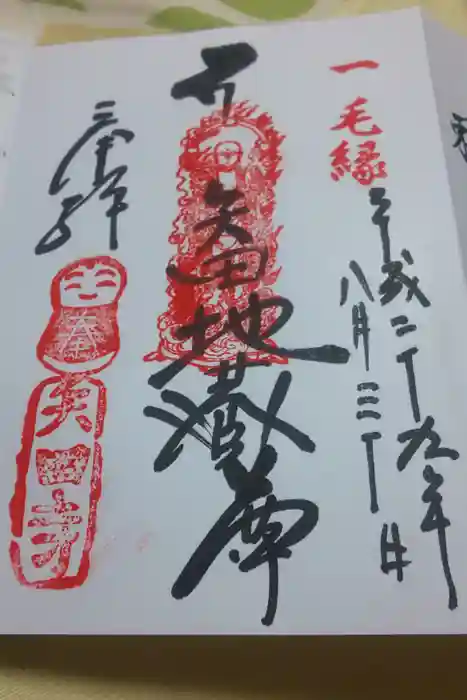 一毛縁
平成二十九年
八月三十日
矢田地蔵尊
奉拝
矢田寺